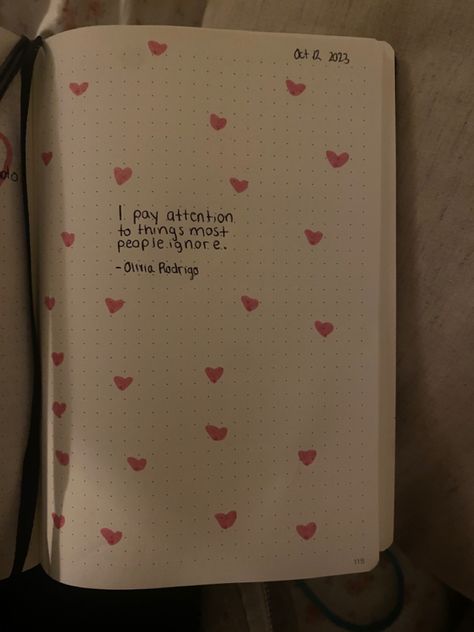 Oct 12 2023
I pay attention
to things most
people ignore.
- Olivia Rodrigo
115